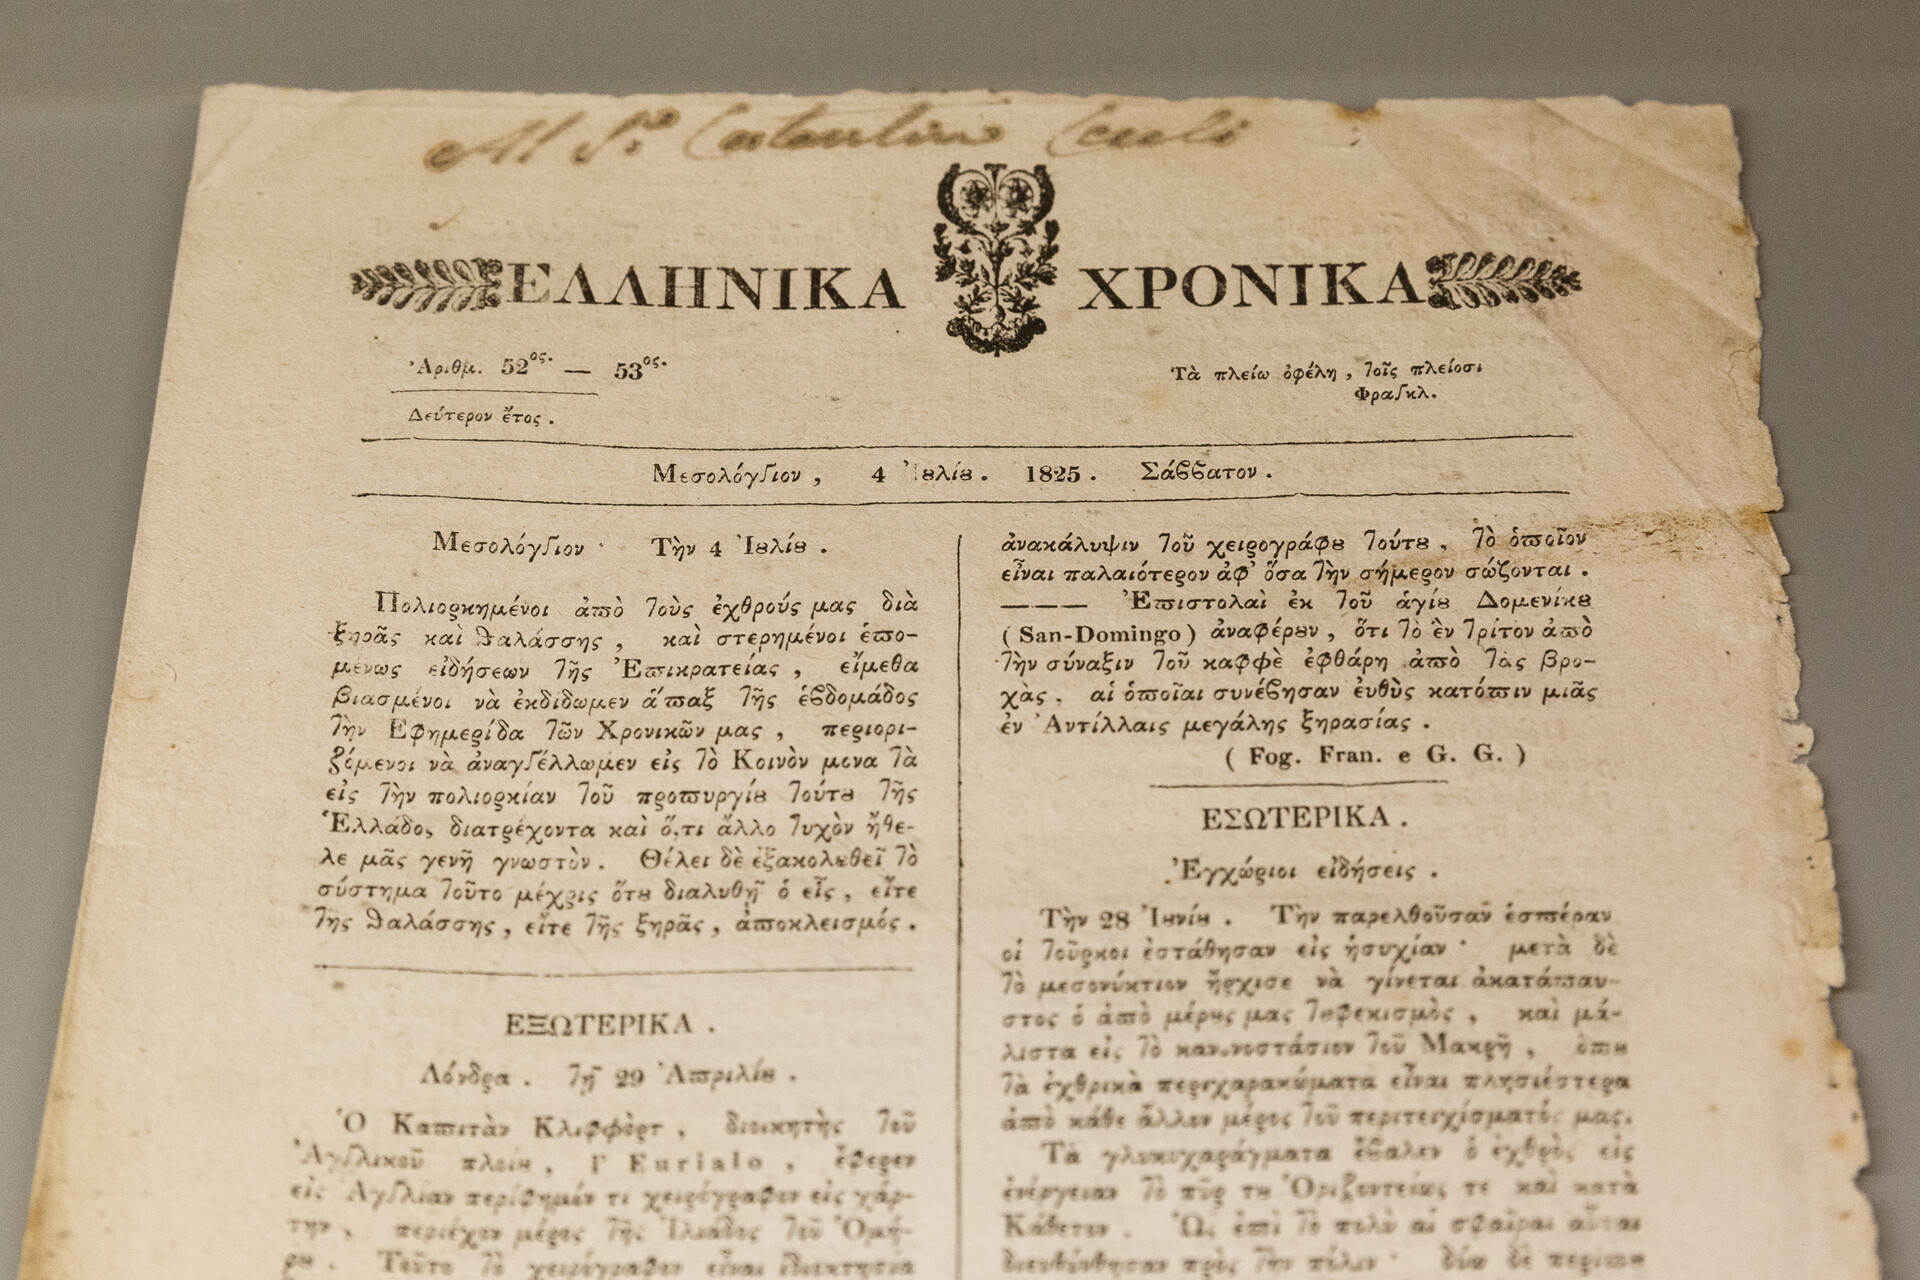 Al S.ʳ Costantino
ΕΛΛΗΝΙΚΑ ΧΡΟΝΙΚΑ
Ἀριθμ. 52ος. — 53ος.
Δεύτερον ἔτος.
Τὰ πλείω ὀφέλη, τοῖς πλείοσι
Φραγκλ.
Μεσολόγγιον, 4 Ἰȣλίȣ. 1825. Σάββατον.
Μεσολόγγιον · Τὴν 4 Ἰȣλίȣ.
Πολιορκημένοι ἀπὸ τοὺς ἐχθρούς μας διὰ
ξηρᾶς καὶ θαλάσσης, καὶ στερημένοι ἑπο-
μένως εἰδήσεων τῆς Ἐπικρατείας, εἴμεθα
βιασμένοι νὰ ἐκδίδωμεν ἅπαξ τῆς ἑβδομάδος
τὴν Ἐφημερίδα τῶν Χρονικῶν μας, περιορι-
ζόμενοι νὰ ἀναγγέλλωμεν εἰς τὸ Κοινὸν μονα τὰ
εἰς τὴν πολιορκίαν τοῦ προπυργίȣ τούτȣ τῆς
Ἑλλάδος διατρέχοντα καὶ ὅ,τι ἄλλο τυχὸν ἤθε-
λε μᾶς γενῆ γνωστὸν. Θέλει δὲ ἐξακολȣθεῖ τὸ
σύστημα τοῦτο μέχρις ὅτȣ διαλυθῇ ὁ εἷς, εἴτε
τῆς θαλάσσης, εἴτε τῆς ξηρᾶς, ἀποκλεισμός.
ΕΞΩΤΕΡΙΚΑ.
Λόνδρα. τῇ 29 Ἀπριλίȣ.
Ὁ Καπιτὰν Κλιφφὸρτ, διοικητὴς τοῦ
Ἀγγλικοῦ πλοίȣ, l' Eurialo, ἔφερεν
εἰς Ἀγγλίαν περίφημόν τι χειρόγραφον εἰς χάρ-
την, περιέχον μέρος τῆς Ἰλιάδος τοῦ Ὁμή-
ρȣ. Τοῦτο τὸ χειρόγραφον εἶναι ἰδιοκτησία
ἀνακάλυψιν τοῦ χειρογράφȣ τούτȣ, τὸ ὁποῖον
εἶναι παλαιότερον ἀφ' ὅσα τὴν σήμερον σώζονται.
——— Ἐπιστολαὶ ἐκ τοῦ ἁγίȣ Δομενίκȣ
(San-Domingo) ἀναφέρȣν, ὅτι τὸ ἓν τρίτον ἀπὸ
τὴν σύναξιν τοῦ καφφὲ ἐφθάρη ἀπὸ τὰς βρο-
χὰς, αἱ ὁποῖαι συνέβησαν ἐυθὺς κατόπιν μιᾶς
ἐν Ἀντίλλαις μεγάλης ξηρασίας.
(Fog. Fran. e G. G.)
ΕΣΩΤΕΡΙΚΑ.
Ἐγχώριοι εἰδήσεις.
Τὴν 28 Ἰȣνίȣ. Τὴν παρελθοῦσαν ἑσπέραν
οἱ τοῦρκοι ἐστάθησαν εἰς ἡσυχίαν · μετὰ δὲ
τὸ μεσονύκτιον ἤρχισε νὰ γίνεται ἀκατάπαυ-
στος ὁ ἀπὸ μέρȣς μας τȣφεκισμὸς, καὶ μά-
λιστα εἰς τὸ κανονοστάσιον τοῦ Μακρῆ, ὁπȣ
τὰ ἐχθρικὰ περιχαρακώματα εἶναι πλησιέστερα
ἀπὸ κάθε ἄλλον μέρος τοῦ περιτειχίσματός μας.
Τὰ γλυκυχαράγματα ἔβαλεν ὁ ἐχθρὸς εἰς
ἐνέργειαν τὸ πῦρ τȣ Ὁριζοντείως τε καὶ κατὰ
Κάθετον. Ὡς ἐπὶ τὸ πολὺ αἱ σφαῖραι αὗται
διευθύνθησαν πρὸς τὴν πόλιν · δύω δὲ περίπȣ